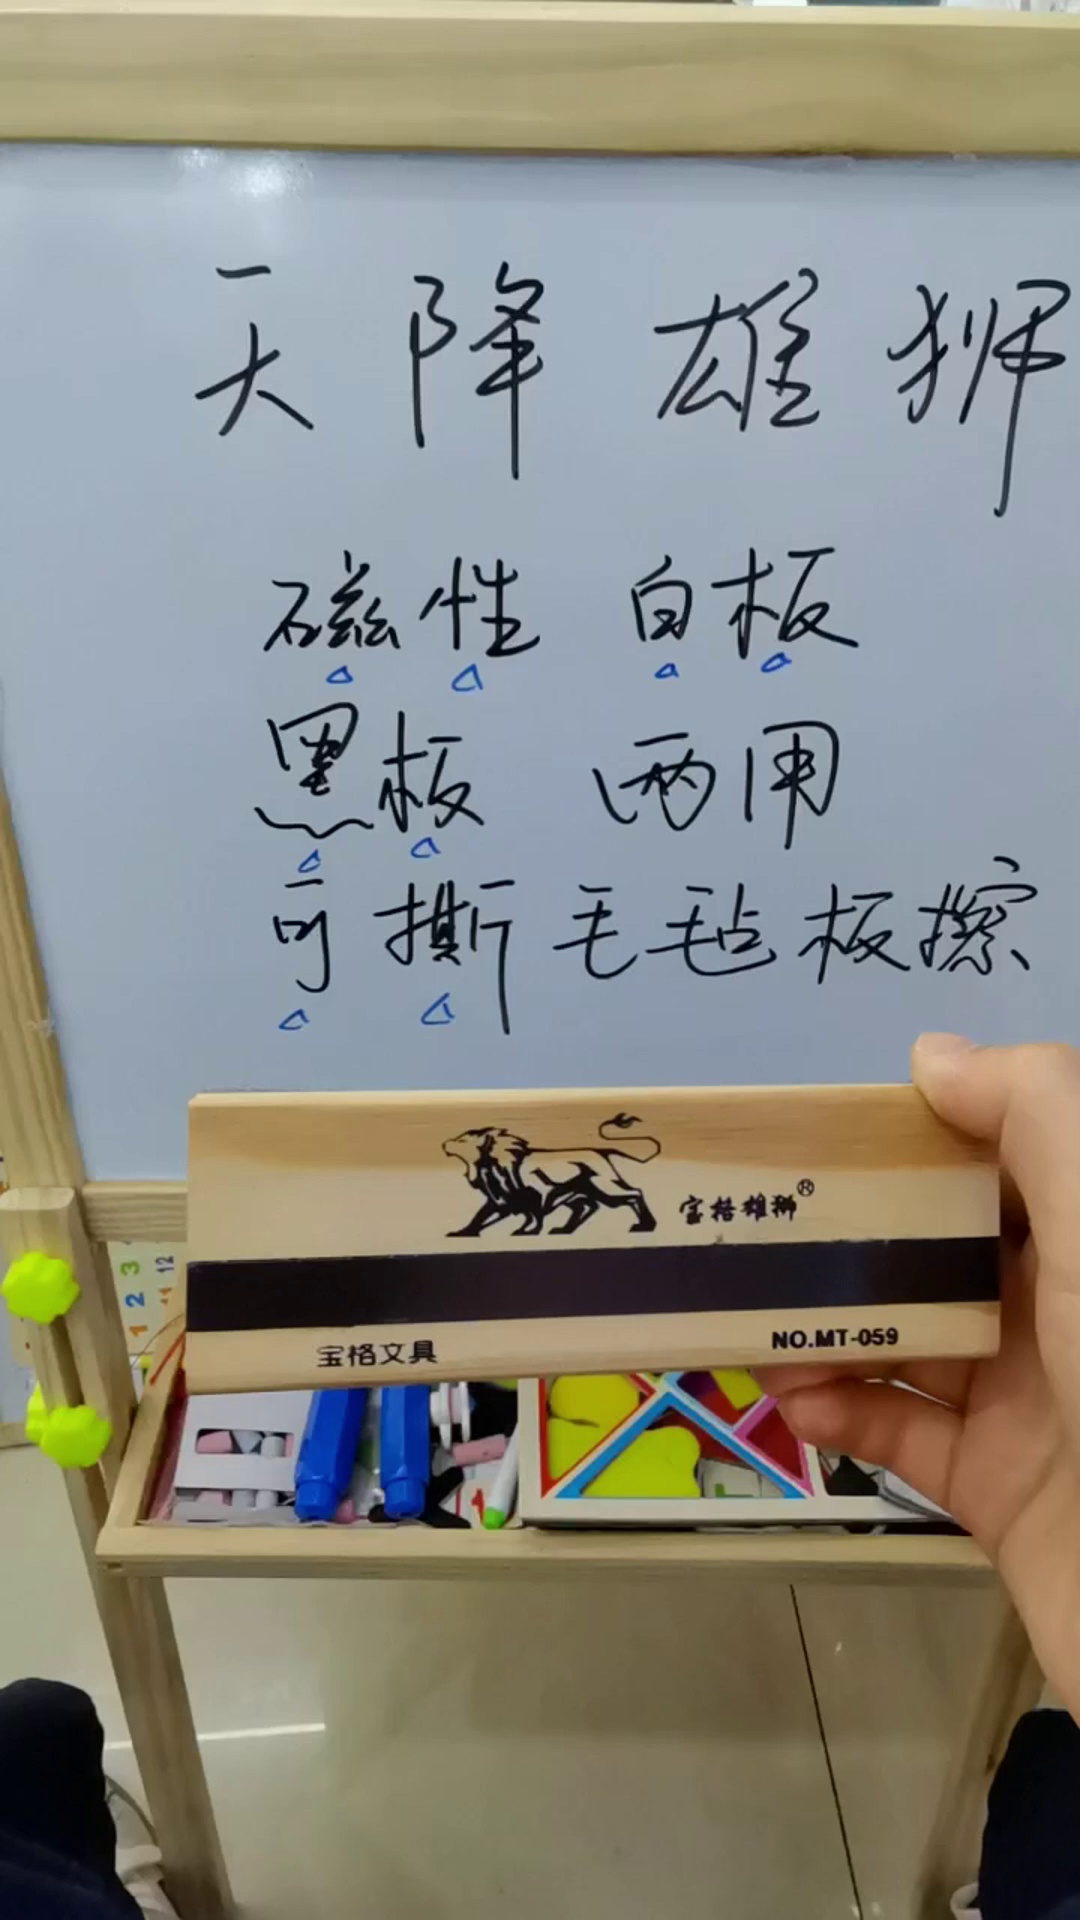 天降雄狮
磁性 白板
黑板 两用
可撕毛毡板擦
宝格雄狮®
宝格文具
NO.MT-059
3
2
1
12
11